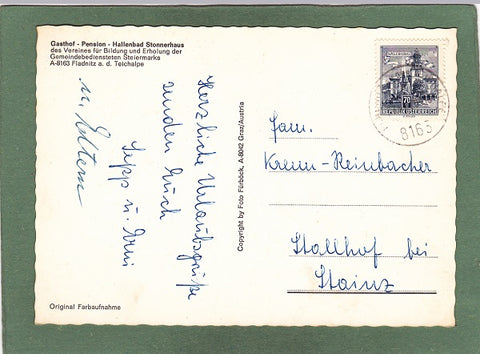 Gasthof - Pension - Hallenbad Stonnerhaus
des Vereines für Bildung und Erholung der
Gemeindebediensteten Steiermarks
A-8163 Fladnitz a. d. Teichalpe
Herzliche Urlaubsgrüße
senden Euch
Sepp u. Erni
u. Eltern
Original Farbaufnahme
Copyright by Foto Fürböck, A-8042 Graz/Austria
REPUBLIK ÖSTERREICH
8163
Fam.
Krenn-Reinbacher
Stallhof bei
Stainz